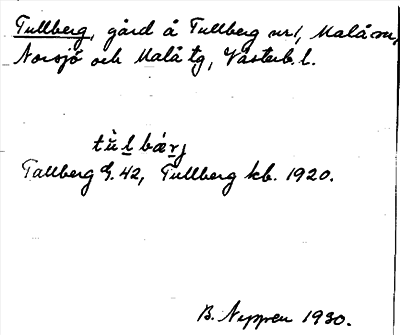 Tullberg, gård å Tullberg nr 1, Malå sn,
Norsjö och Malå tg, Västerb. l.
tu̇l bærj
Tallberg G. 42, Tullberg kb. 1920.
B. Neppen 1930.